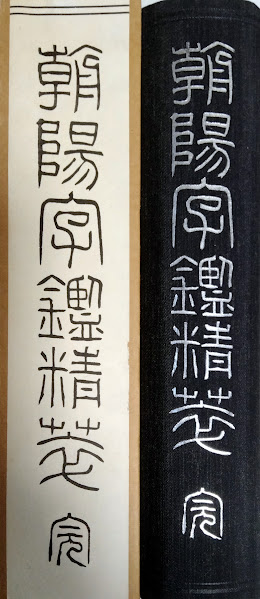 朝陽字鑑精萃 完
朝陽字鑑精萃 完